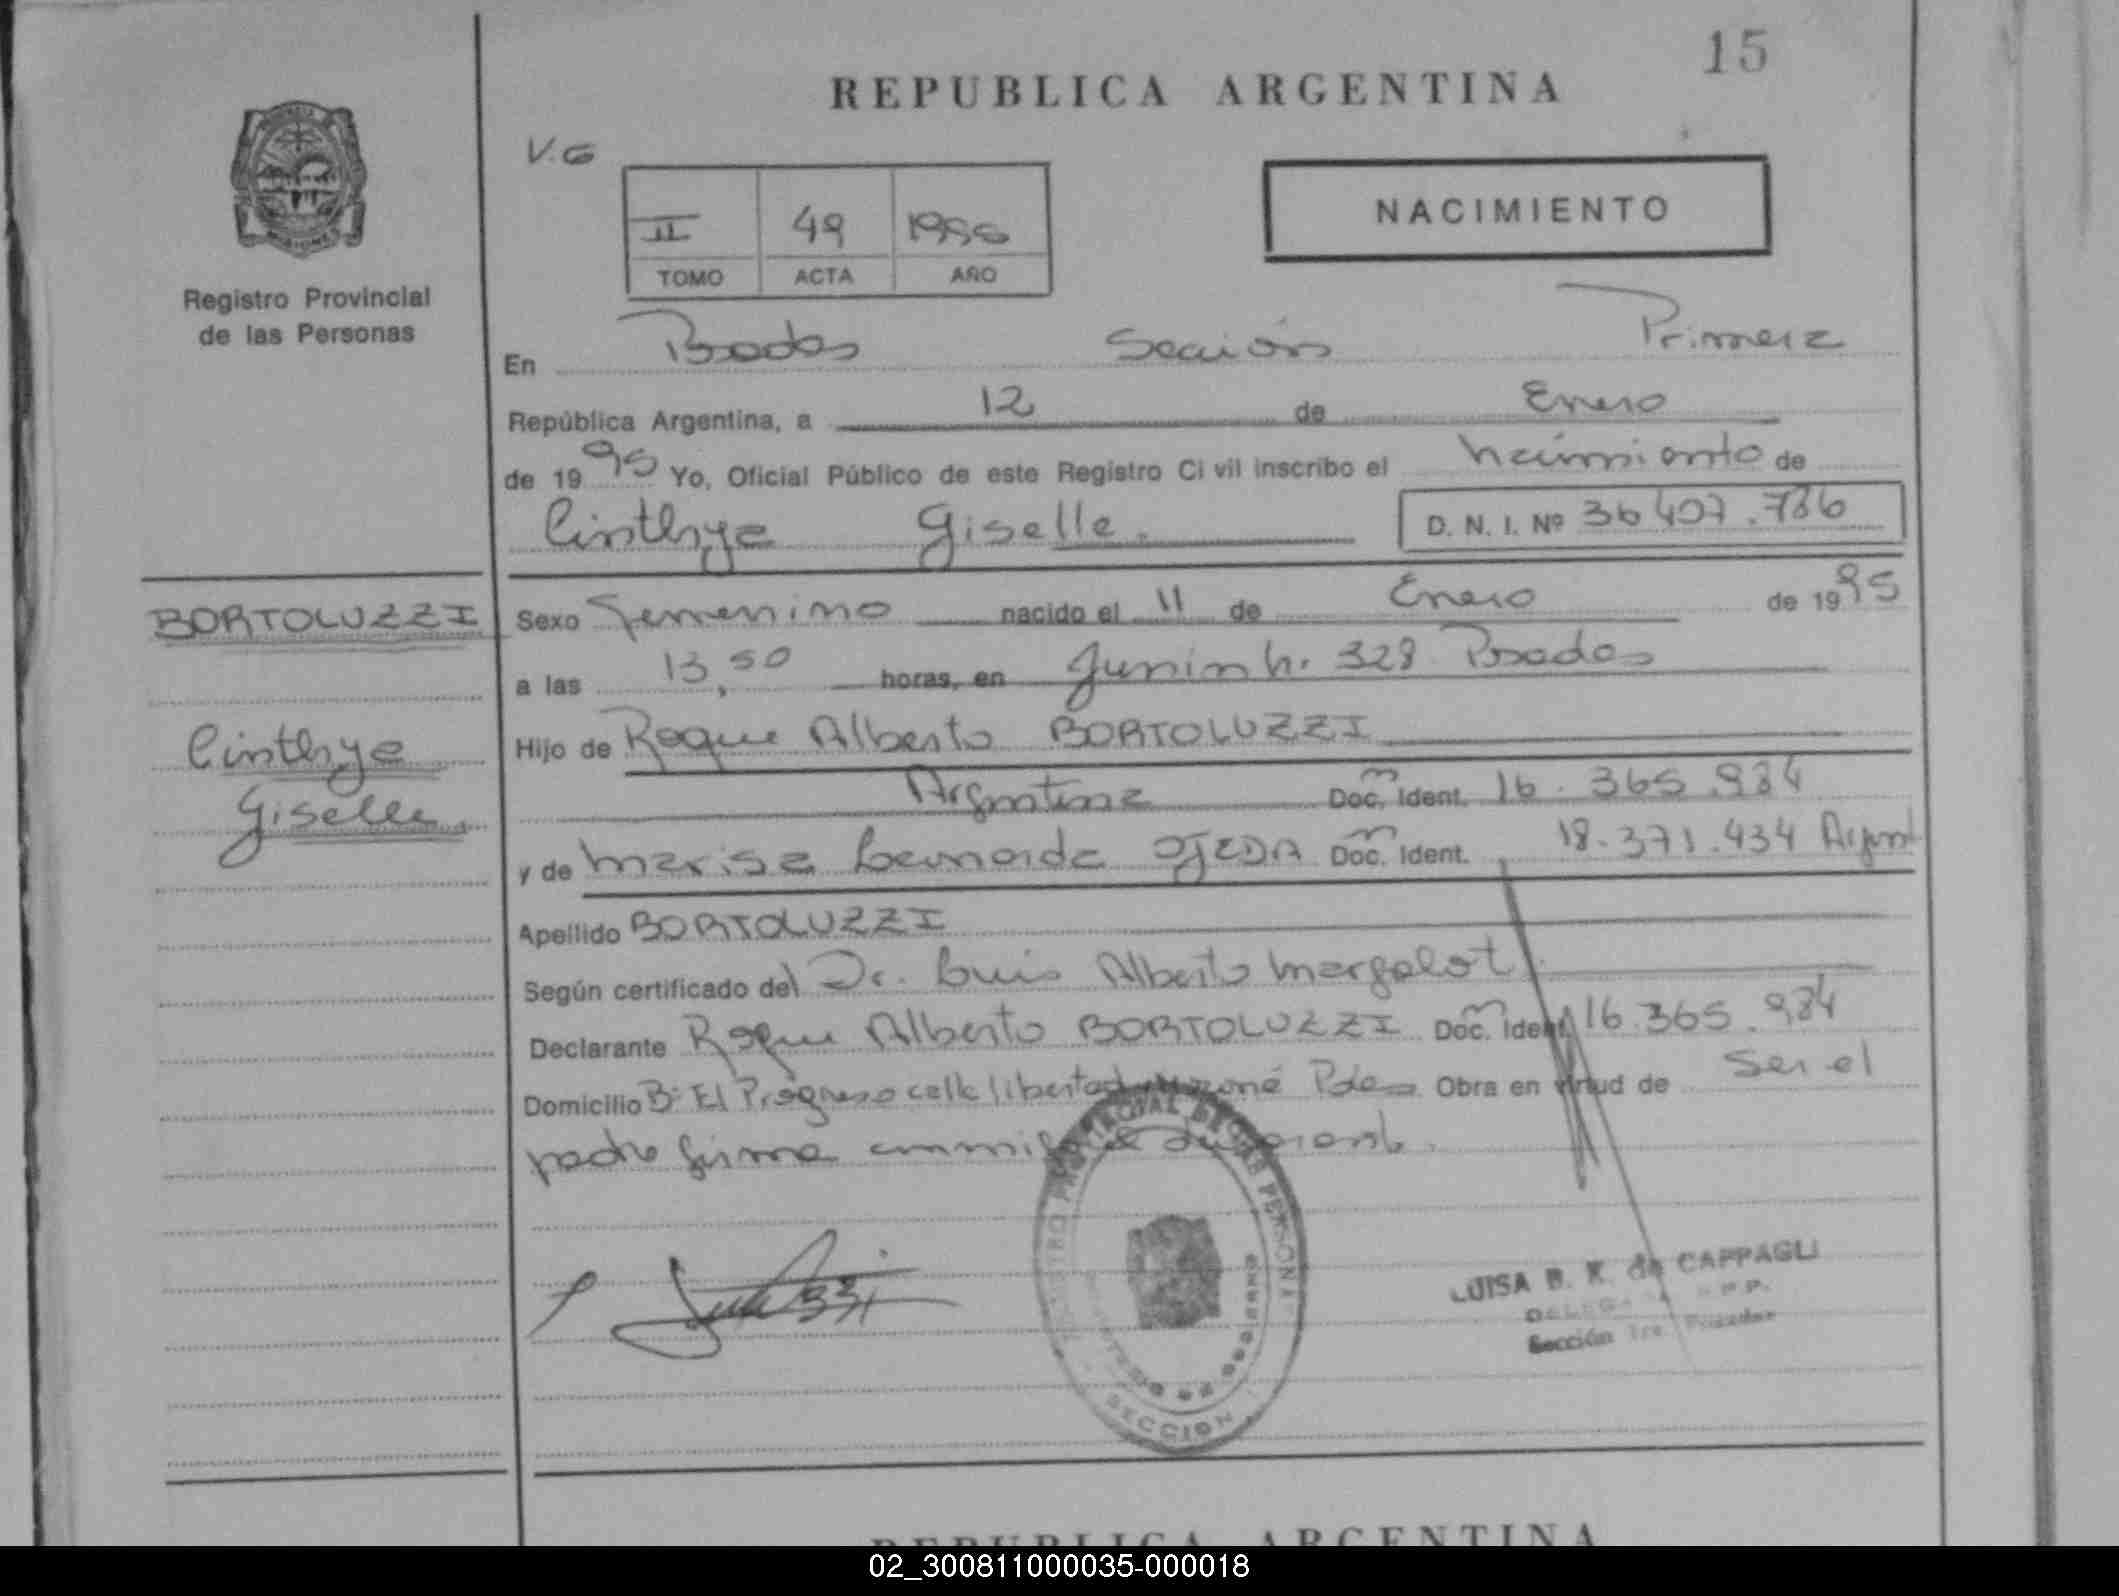 15
REPUBLICA ARGENTINA
V.G
II 49 1995
TOMO ACTA AÑO
NACIMIENTO
Registro Provincial
de las Personas
En Posadas Sección Primera
República Argentina, a 12 de Enero
de 1995 Yo, Oficial Público de este Registro Civil inscribo el nacimiento de
Cinthya Giselle. D. N. I. Nº 36407.786
BORTOLUZZI
Cinthya
Giselle.
Sexo Femenino nacido el 11 de Enero de 1995
a las 13,50 horas, en Junin n. 328 Posadas
Hijo de Roque Alberto BORTOLUZZI
Argentina Doc. Ident. 16.365.984
y de Marisa OJEDA Doc. Ident. 18.371.434 Argent
Apellido BORTOLUZZI
Según certificado del Dr. Luis Alberto Margalot
Declarante Roque Alberto BORTOLUZZI Doc. Ident. 16.365.984
Domicilio Bº El Progreso calle libertad Pdas Obra en virtud de ser el
padre firma conmigo
REGISTRO PROVINCIAL DE LAS PERSONAS
SECCION
LUISA B. K. de CAPPAGLI
Sección 1ra. Posadas
REPUBLICA ARGENTINA
02_300811000035-000018